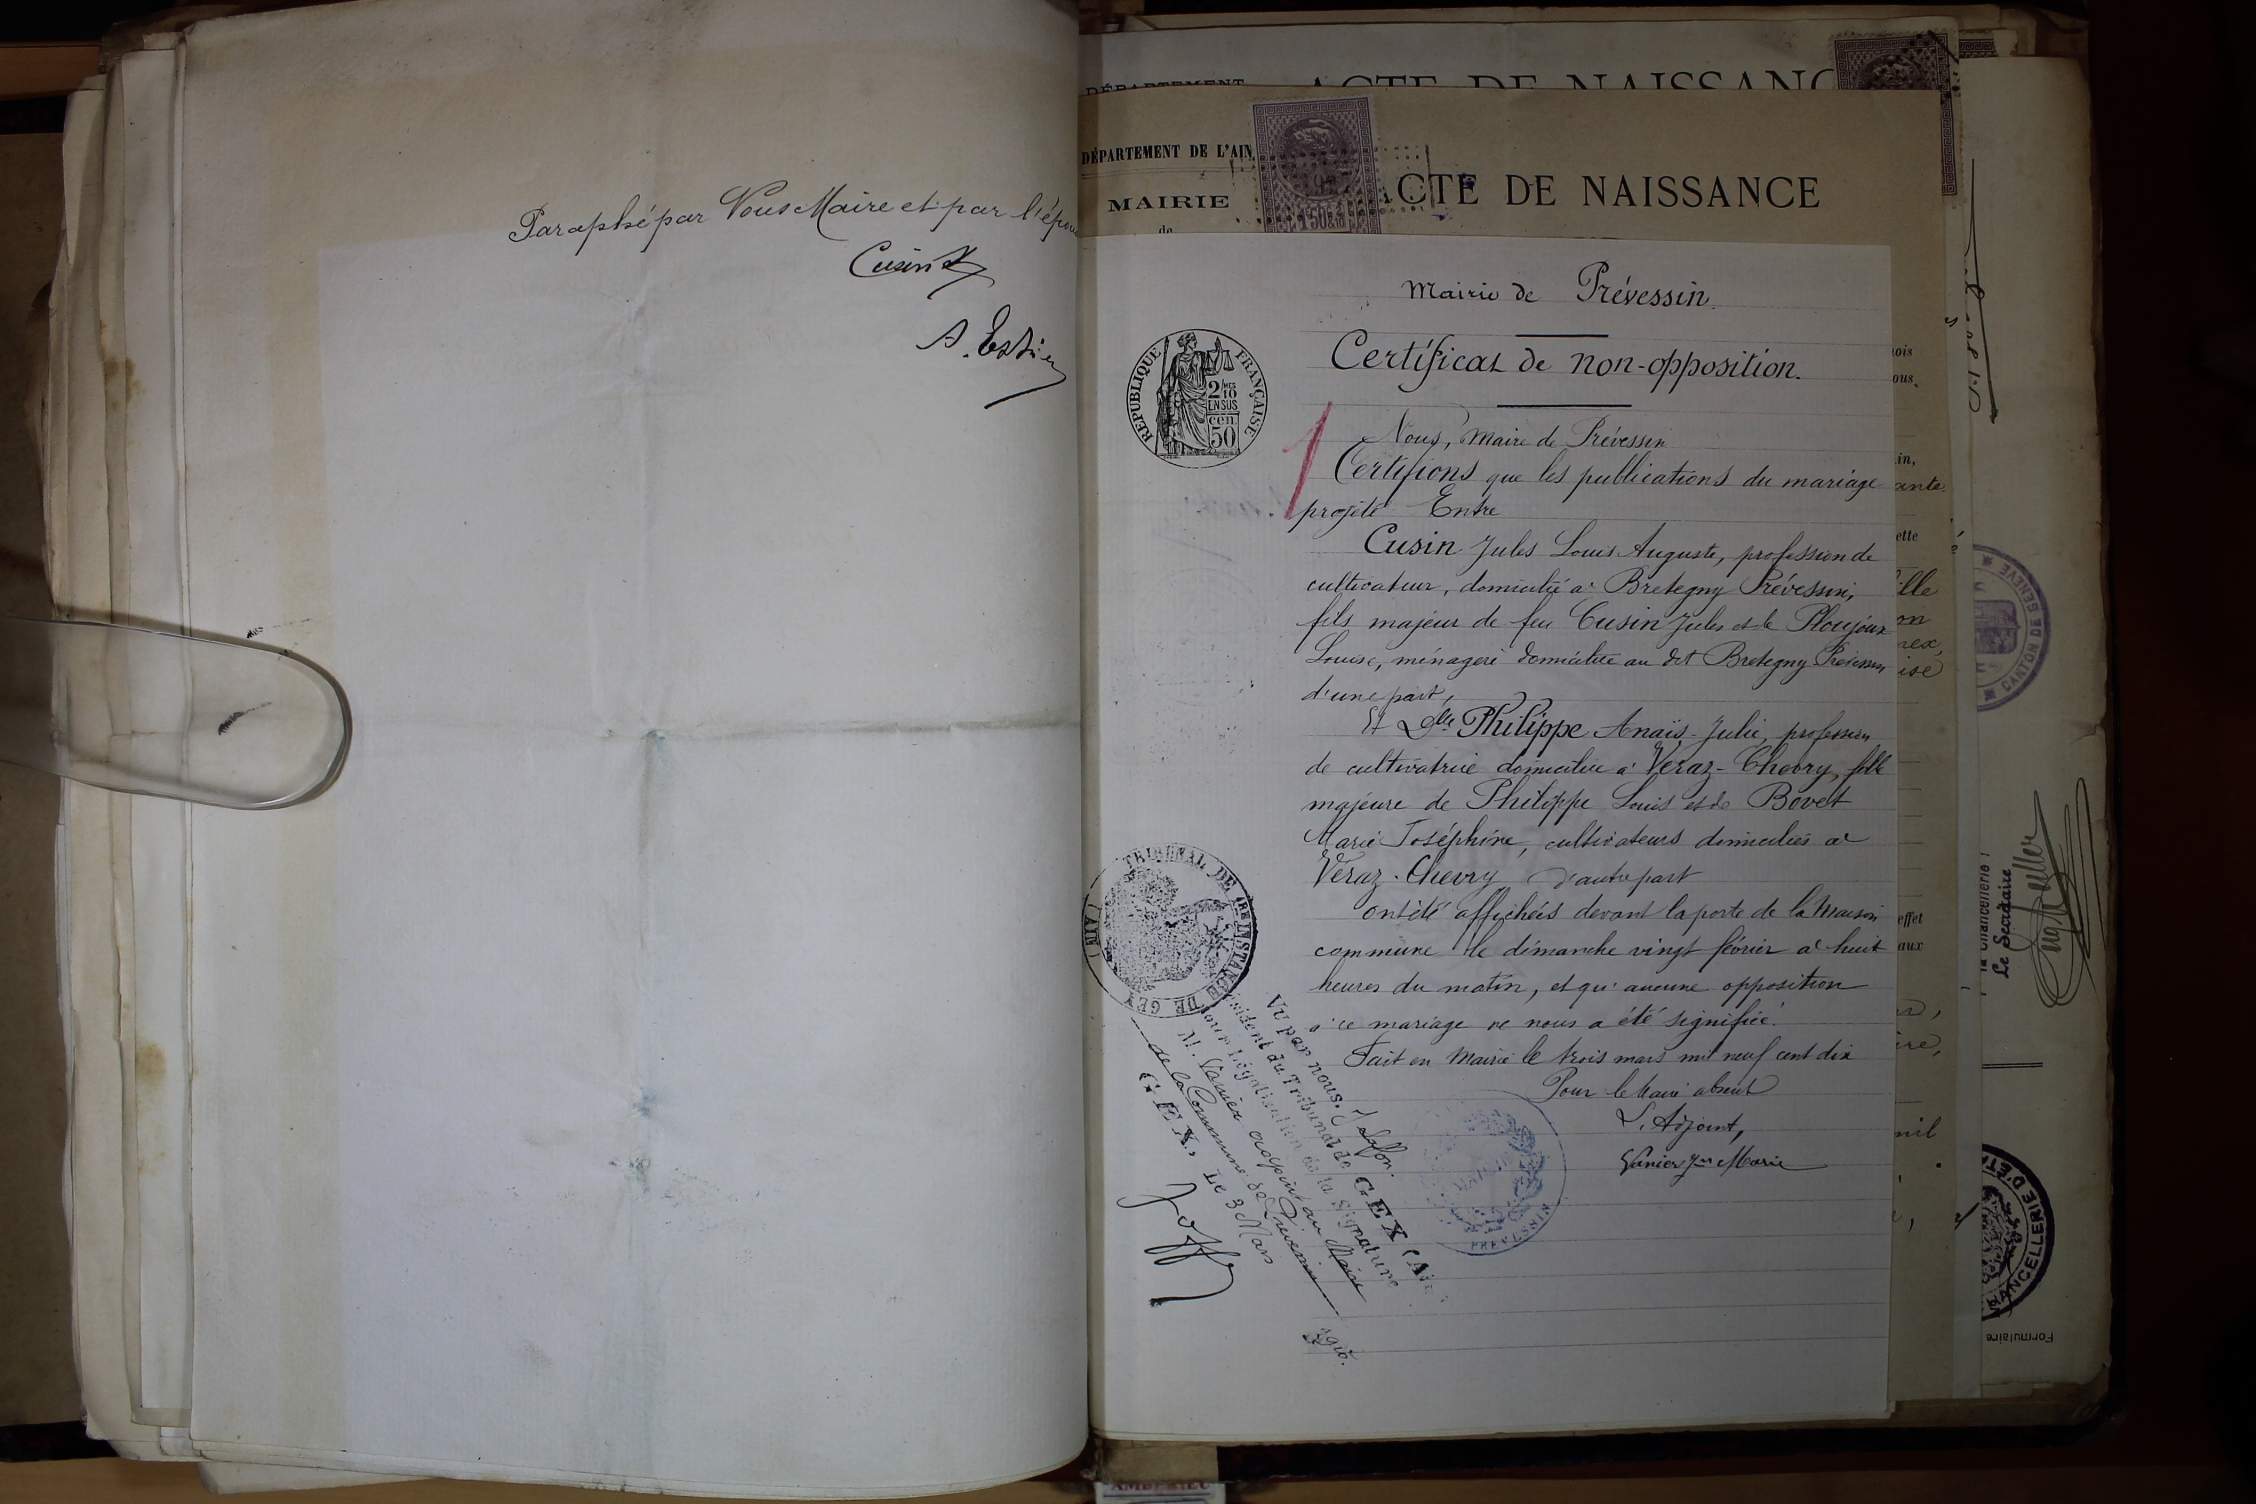 Paraphé par Nous Maire et par l'épou
Cusin
A. Estier
DÉPARTEMENT
ACTE DE NAISSANC
DÉPARTEMENT DE L'AIN
MAIRIE
de
ACTE DE NAISSANCE
1F50&10
Mairie de Prévessin
RÉPUBLIQUE FRANÇAISE
2/MES
10
EN SUS
cen
50
Certificat de non-opposition.
Nous, Maire de Prévessin
Certifions que les publications du mariage
projeté Entre
Cusin Jules Louis Auguste, profession de
cultivateur, domicilié à Bretegny Prévessin,
fils majeur de feu Cusin Jules et de Ploujoux
Louise, ménagère domiciliée au dit Bretegny Prévessin
d'une part,
Et Dlle Philippe Anaïs-Julie, profession
de cultivatrice domiciliée à Véraz-Chevry, fille
majeure de Philippe Louis et de Bovet
Marie Joséphine, cultivateurs domiciliés à
Véraz-Chevry d'autre part
ont été affichées devant la porte de la Maison
commune le dimanche vingt février à huit
heures du matin, et qu'aucune opposition
à ce mariage ne nous a été signifiée.
Fait en Mairie le trois mars mil neuf cent dix
Pour le Maire absent
L'Adjoint,
Vanier Jn Marie
TRIBUNAL DE 1RE INSTANCE DE GEX (AIN)
Vu par nous, J Laffon
Président du Tribunal de GEX (Ain
pour légalisation de la Signature
M. Vanier adjoint au Maire
de la Commune de Prévessin
GEX, Le 3 Mars
1910.
MAIRIE
PRÉVESSIN
ois
ous,
in,
ante
ette
ille
on
nex,
ise
effet
aux
ire,
mil
CANTON DE GENÈVE
la Chancellerie :
Le Secrétaire
CHANCELLERIE D'ÉTA
Formulaire
AMBÉRIEU